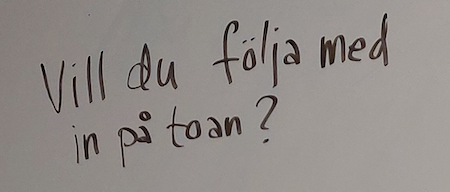 Vill du följa med
in på toan?